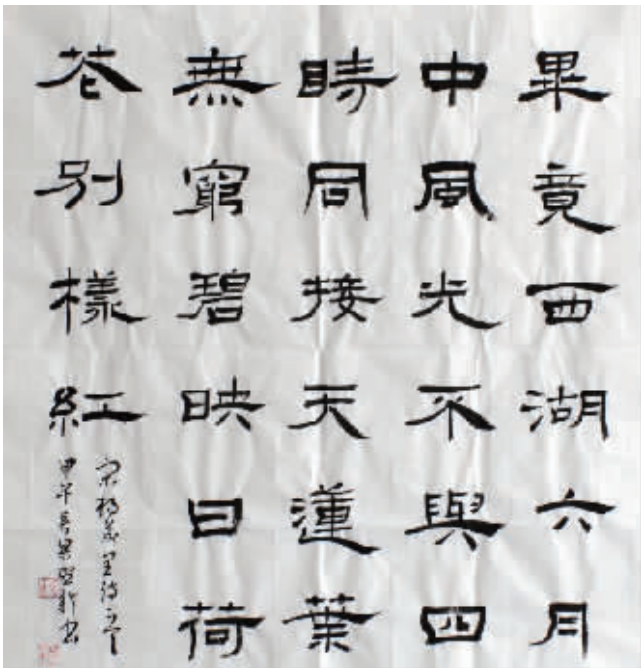 畢竟西湖六月
中風光不與四
時同接天蓮葉
無窮碧映日荷
花別樣紅
宋楊萬里詩
甲午春書